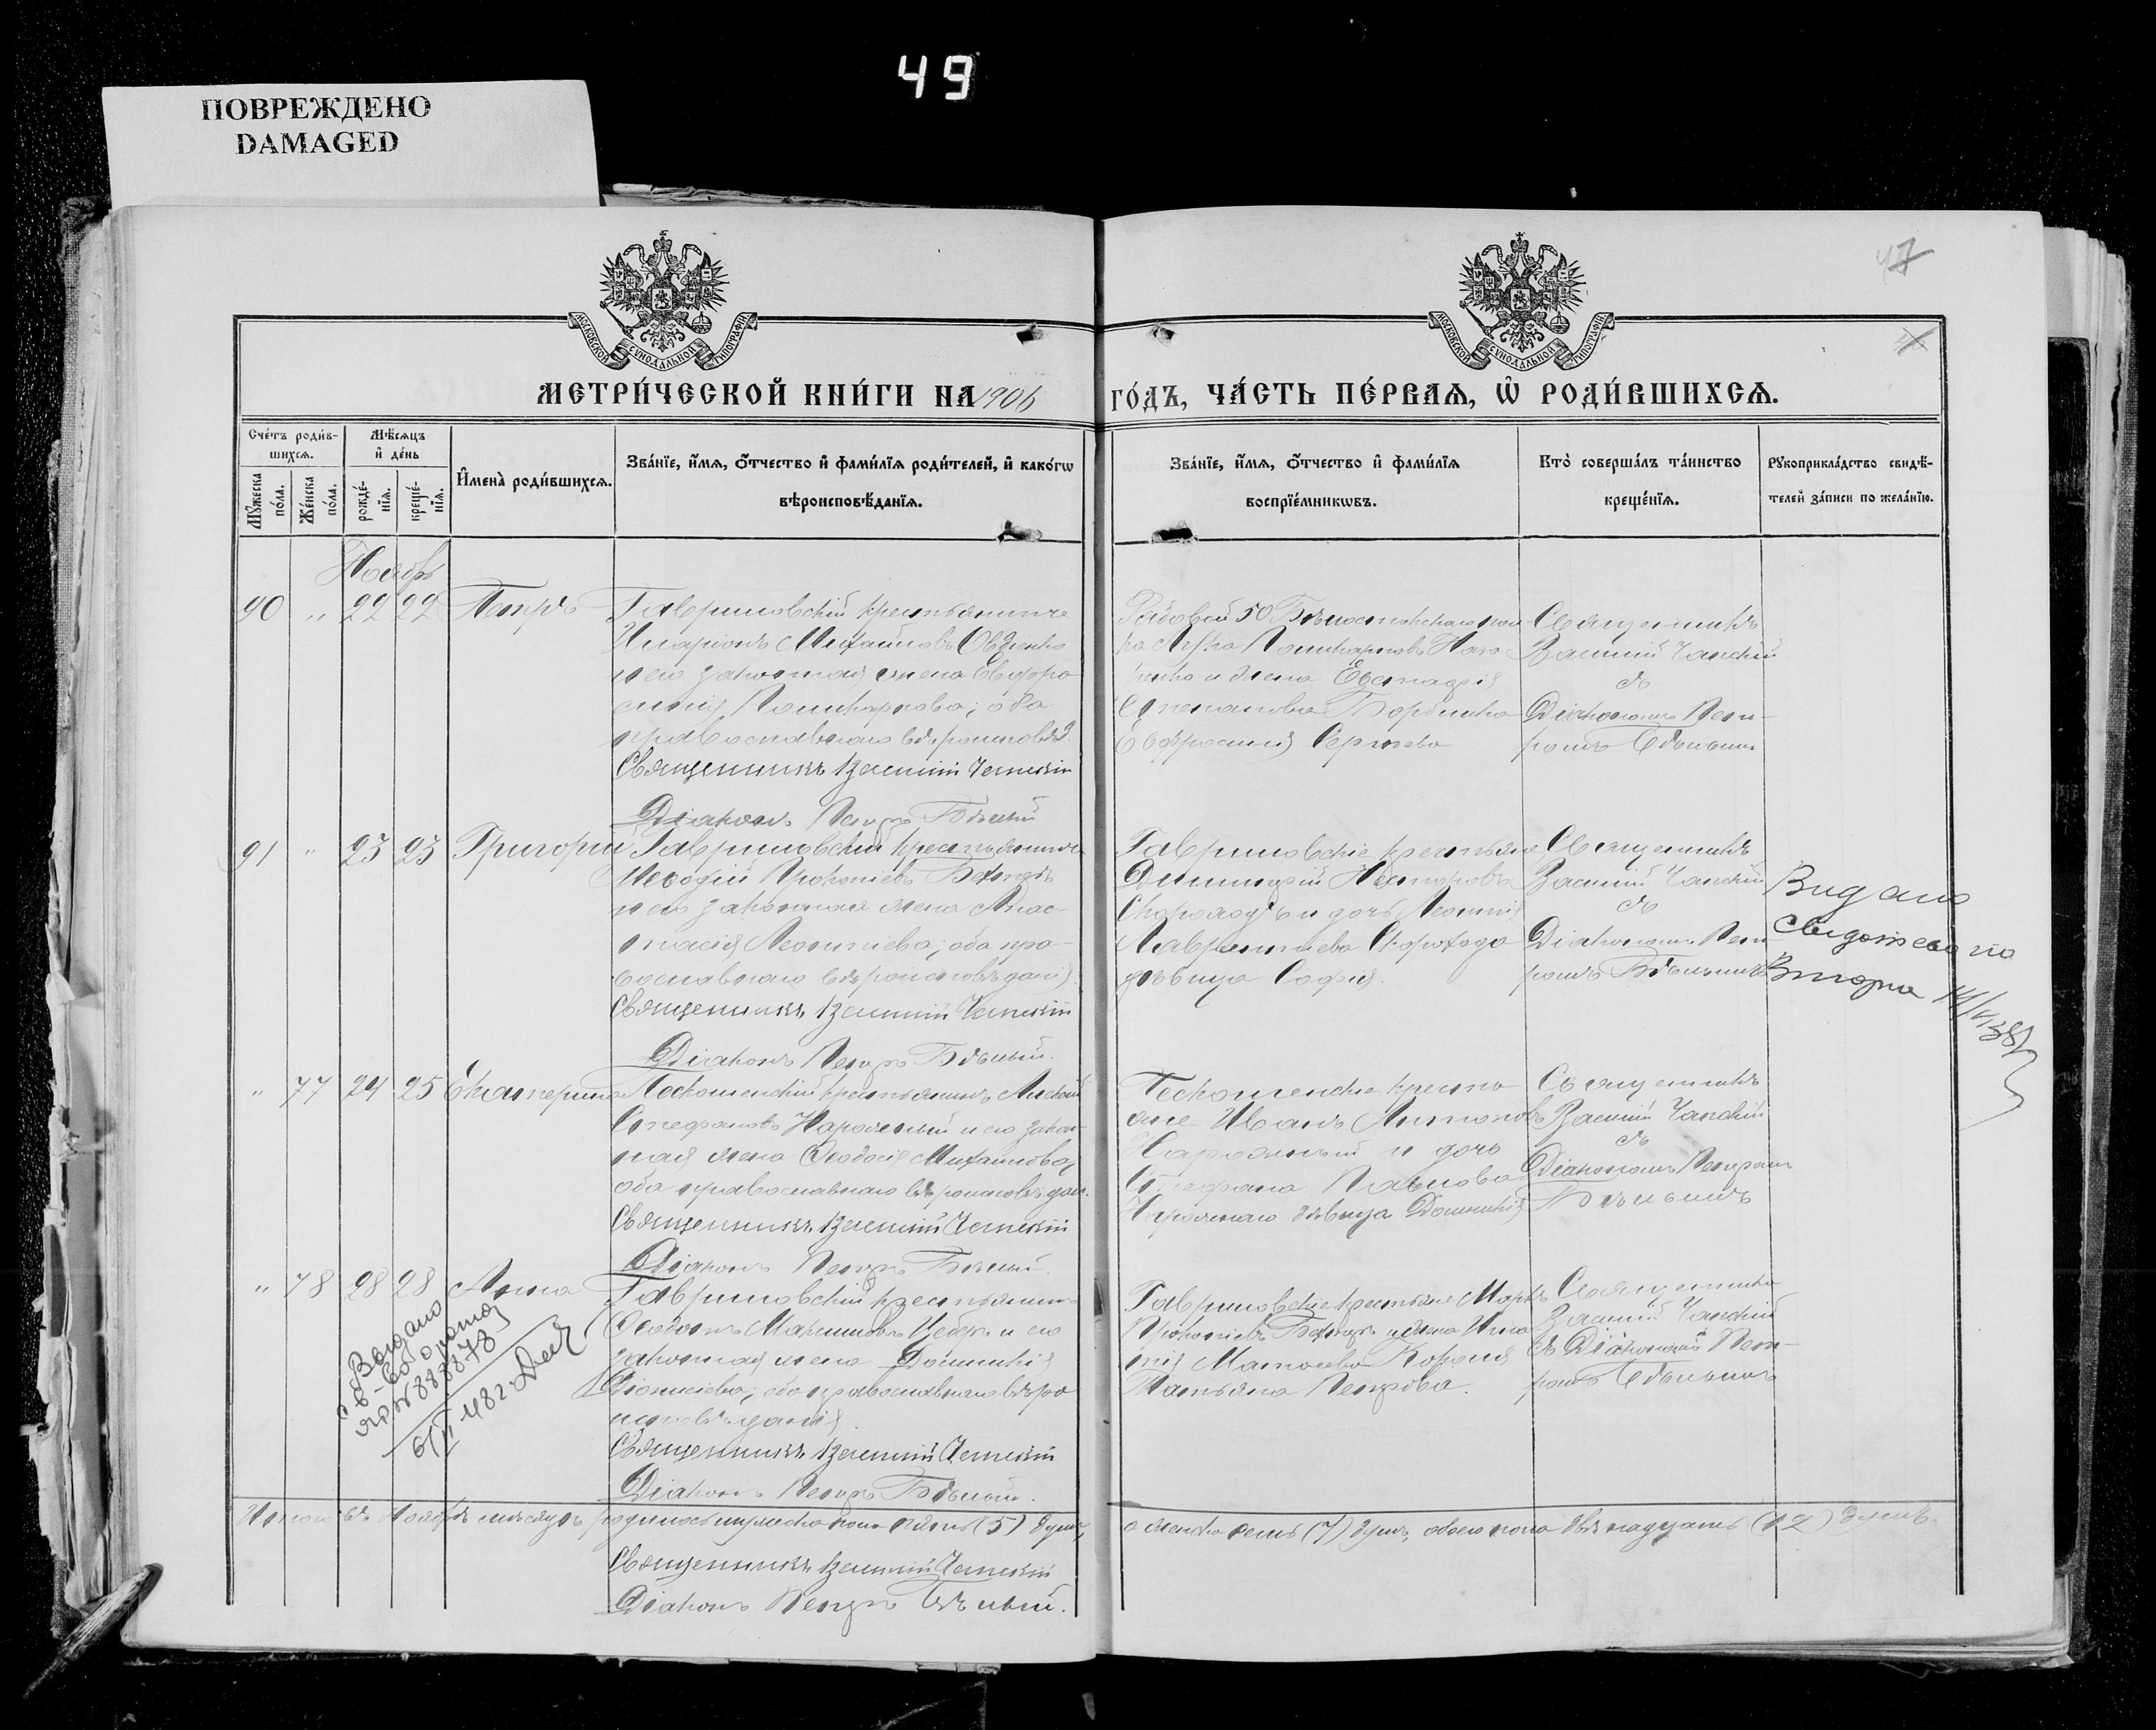 49
ПОВРЕЖДЕНО
DAMAGED
47
МОСКОВСКОЙ СѴНОДАЛЬНОЙ ТИПОГРАФІИ
МОСКОВСКОЙ СѴНОДАЛЬНОЙ ТИПОГРАФІИ
МЕТРИ́ЧЕСКОЙ КНИ́ГИ НА 1906 ГО́ДЪ, ЧА́СТЬ ПЕ́РВАЯ, Ѡ РОДИ́ВШИХСЯ.
Сче́тъ роди́в-
шихсѧ.
Мꙋ́жеска по́ла.
Же́нска по́ла.
Мѣ́сѧцъ
и҆ де́нь
рожде́-
нїѧ.
креще́-
нїѧ.
И҆мена̀ роди́вшихсѧ.
Зва́нїе, и҆́мѧ, о҆́тчество и҆ фами́лїѧ роди́телей, и҆ како́гѡ
вѣроисповѣ́данїѧ.
Зва́нїе, и҆́мѧ, о҆́тчество и҆ фами́лїѧ
воспрїе́мникѡвъ.
Кто̀ соверша́лъ та́инство
креще́нїѧ.
Рꙋкоприкла́дство свидѣ́-
телей за́писи по жела́нїю.
Ноябрь
90 " 22 22 Петръ
Гавриловскій крестьянинъ
Иларіонъ Михайловъ Овдіенко
и его законная жена Евфро
синія Поликарпова; оба
православнаго вѣроисповѣд.
Священникъ Василій Чапскій
Діаконъ Петръ Бѣлый
Рядовой 50 Бѣлостокскаго пол
ка Лука Поликарповъ
и жена
Степанова
Евфросинія Сергіева
Священникъ
Василій Чапскій
съ
Діакономъ Пет-
ромъ Бѣлымъ
91 " 23 23 Григорій
Гавриловскій крестьянинъ
Меѳодій Прокопіевъ Бехтеръ
и его законная жена Анас-
тасія Леонтіева; оба пра-
вославнаго вѣроисповѣданія.
Священникъ Василій Чапскій
Діаконъ Петръ Бѣлый.
Гавриловскіе крестьяне
Димитрій Несторовъ
Скороходъ и дочь Леонтія
Лаврентіева Скорохода
дѣвица Софія.
Священникъ
Василій Чапскій
съ
Діакономъ Пет
ромъ Бѣлымъ
Видано
свидотство
Вторня
" 77 24 25 Екатерина
крестьянинъ Алексѣй
Стефановъ Нарожный и его закон-
ная жена Ѳеодосія Михайлова,
оба православнаго вѣроисповѣдан.
Священникъ Василій Чапскій
Діаконъ Петръ Бѣлый.
крестья
яне Иванъ Антоновъ
Нарожный и дочь
Стефана Павлова
Нарожнаго дѣвица Домникія
Священникъ
Василій Чапскій
съ
Діакономъ Петромъ
Бѣлымъ
" 78 28 28 Анна
Гавриловскій крестьянинъ
Ѳеодотъ Мартиновъ Цеберъ и его
законная жена Домникія
Діонисіева; оба православнаго вѣро
исповѣданія.
Священникъ Василій Чапскій
Діаконъ Петръ Бѣлый.
Гавриловскіе крестьяне Маркъ
Прокопіевъ Бехтеръ и жена
Матѳеева Короля
Татьяна Петрова.
Священникъ
Василій Чапскій
съ Діакономъ Пет-
ромъ Бѣлымъ
Выдано
св-во о рожд
яр № 888873
6/II 1982
Итого въ Ноябрѣ мѣсяцѣ родилось мужеска пола пять (5) душъ, а женска семь (7) душъ, обоего пола двѣнадцать (12) душъ.
Священникъ Василій Чапскій
Діаконъ Петръ Бѣлый.